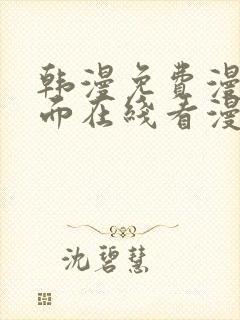 韩漫免费漫
而在线看漫
沈碧慧